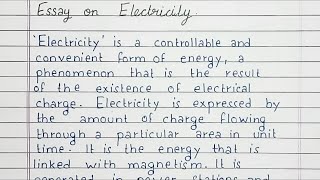 Essay on Electricity.
'Electricity' is a controllable and
convenient form of energy, a
phenomenon that is the result
of the existence of electrical
charge. Electricity is expressed by
the amount of charge flowing
through a particular area in unit
time. It is the energy that is
linked with magnetism. It is
generated in power stations and